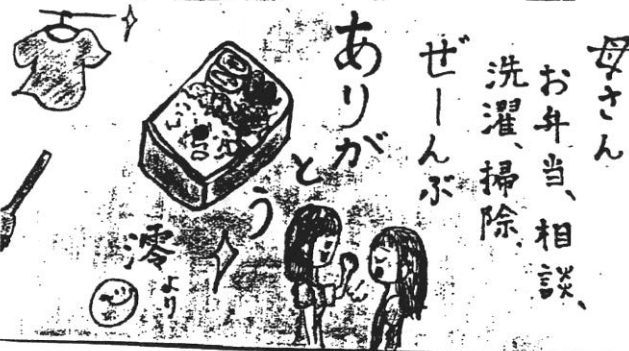 母さん
お弁当、相談、
洗濯、掃除、
ぜーんぶ
ありがとう
澪より